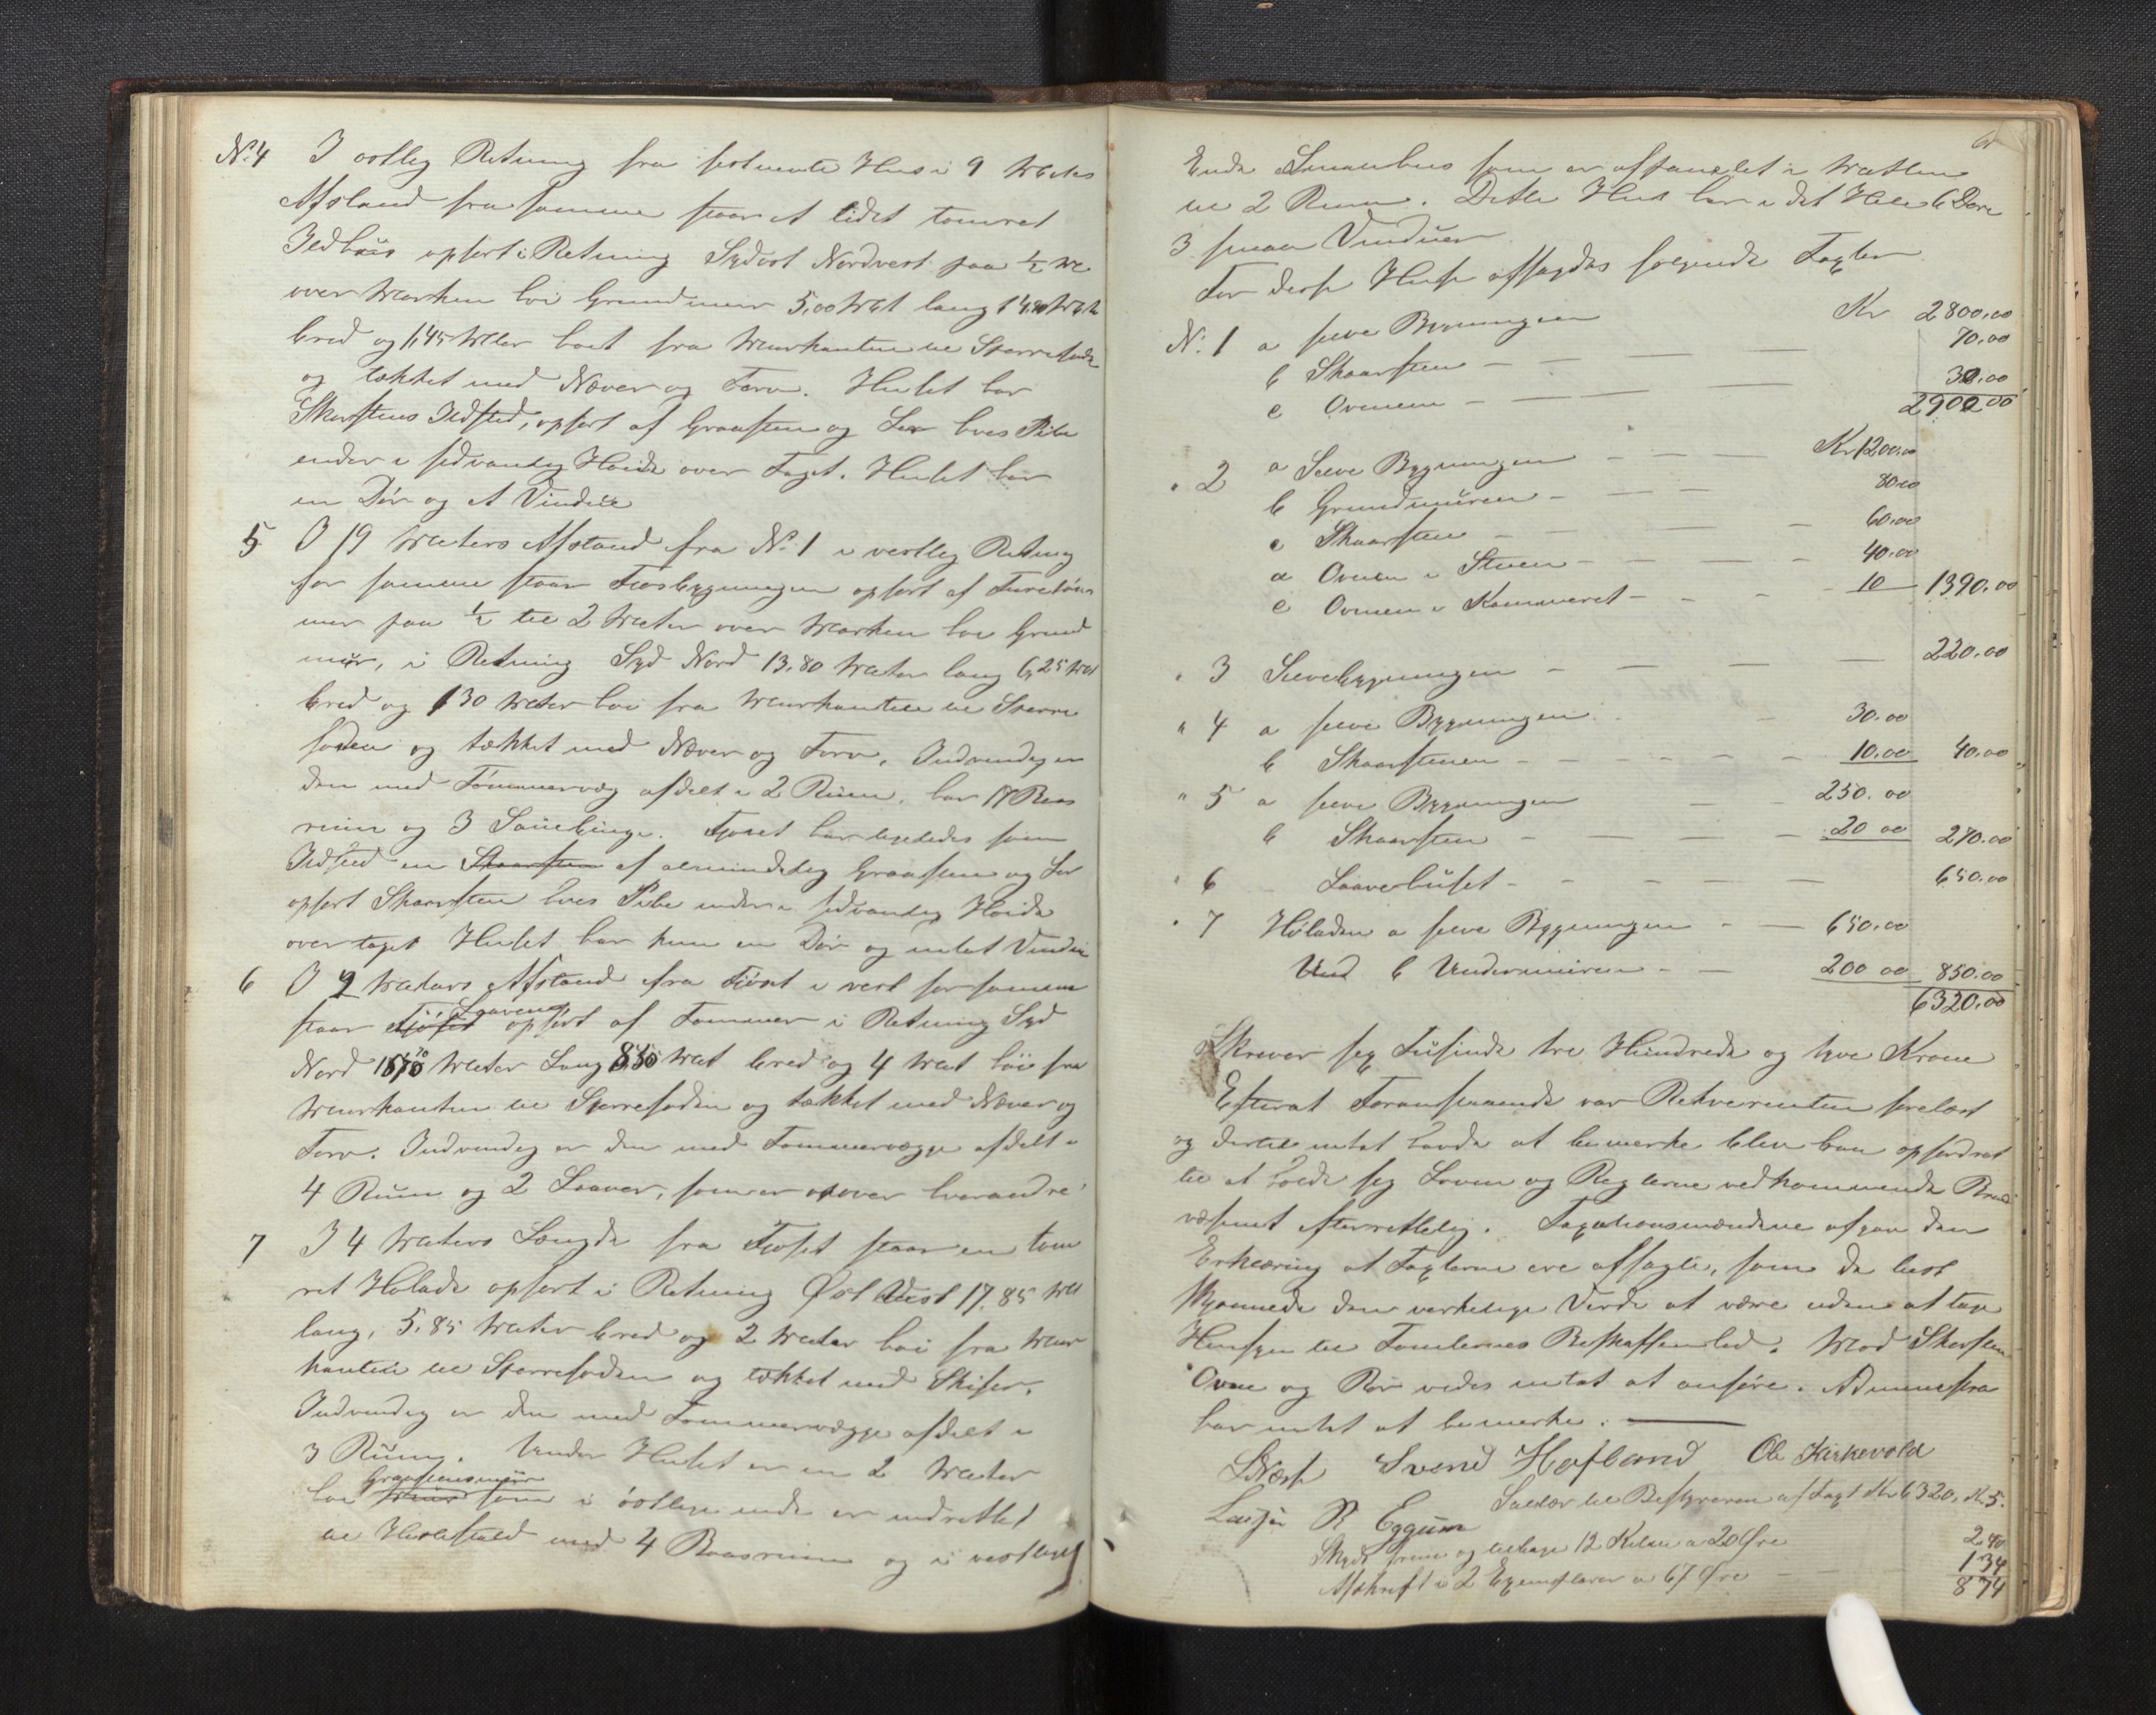 No. 4 I ostlig Retning fra sistnævnte Hus i 9 Meters
Afstand fra samme staar et lidet tomret
Ildhuus opført i Retning Sydost Nordvest paa ½ M.
over Marken hoi Grundmuur 5,00 Met lang 4,20 Met
bred og 1,45 Meter hoit fra Muurkanten til Sperrefoden
og tækket med Næver og Torv. Huset har
Skorstens Ildsted, opført af Graasten og Ler hvis Pibe
ender i sedvanlig Høide over Taget. Huset har
en Dør og et Vindue
5 I 19 Meters Afstand fra No. 1 i vestlig Retning
for samme staar Fjosbygningen opført af Furetøm
mer paa ½ til 2 Meter over Marken hoi Grund
muur, i Retning Syd Nord 13,80 Meter lang 6,25 Met
bred og 130 Meter hoi fra Muurkanten til Sperre
foden og tækket med Næver og Torv. Indvendig er
den med Tømmervæg afdelt i 2 Rum, har 17 Baas
rum og 3 Sauebinge. Fjøset har ligeledes som
Ildsted en Skaarsten af almindelig Graasten og Ler
opført Skaarsten hvis Pibe ender i sedvanlig Høide
over taget Huset har kun en Dør og intet Vindue
6 I 9 Meters Afstand fra Fjøset i vest for samme
staar Fjøset Laaven opført af Tommer i Retning Syd
Nord 15,70 Meter Lang 8,50 Met bred og 4 Met høi fra
Muurkanten til Sperrefoden og tækket med Næver og
Torv. Indvendig er den med Tommervægge afdelt i
4 Rum og 2 Laaver, som er over hverandre
7 I 4 Meters Længde fra Fjøset staar en tom
ret Hølade opført i Retning Øst Vest 17,85 Met
lang, 5,85 Meter bred og 2 Meter hoi fra Muur
kanten til Sperrefoden og tækket med Skifer.
Indvendig er den med Tommervægge afdelt i
3 Rum. Under Huset er en 2 Meter
hoi Graastensmuur som i østlige ende er indrettet
til Hestestald med 4 Baasrum og i vestlige
Ende Smaahus som er afpanelet i Midten
til 2 Rum. Dette Hus har i det Hele 6 Døre
3 smaa Vinduer
For disse Huse afsagdes følgende Taxter
No. 1 a selve Bygningen Kr 2800,00
b Skaarsten 70,00
c Ovnene 30,00
2900 00
" 2 a Selve Bygningen Kr 1200,00
b Grundmuren 80,00
c Skaarsten 60,00
d Ovnen i Stuen 40,00
e Ovnen i Kammeret 10 1390,00
" 3 Selvebygningen 220,00
" 4 a selve Bygningen 30,00
b Skaarstenen 10,00 40,00
" 5 a selve Bygningen 250,00
b Skaarsten 20 00 270,00
" 6 Laavehuset 650,00
" 7 Høladen a selve Bygningen 650,00
Und b Undermuren 200 00 850,00
6320,00
Skriver sex Tusinde tre Hundrede og tyve Kroner
Efterat Foranstaaende var Rekvirenten forelæst
og dertil intet havde at bemerke blev han opfordret
til at holde sig Loven og Reglerne vedkommende Brand
væsenet efterrettelig. Taxationsmændene afgav den
Erklæring at Taxterne ere afsagte, som de best
skjønnede den verkelige Verdi at være uden at tage
Hensyn til Tomternes Beskaffenhed. Mod Skorsten
Ovne og Rør vides intet at anføre. Administra
har intet at bemerke.
LNæss Svend Hofland Ole Kirkevold
R Eggum
Salær til Bestyreren af Taxt Kr 6320, Kr 5.
Skyds frem og tilbage 12 Kilm a 20 Øre 2 40
Afskrift i 2 Exemplarer a 67 Øre 1 34
8 74